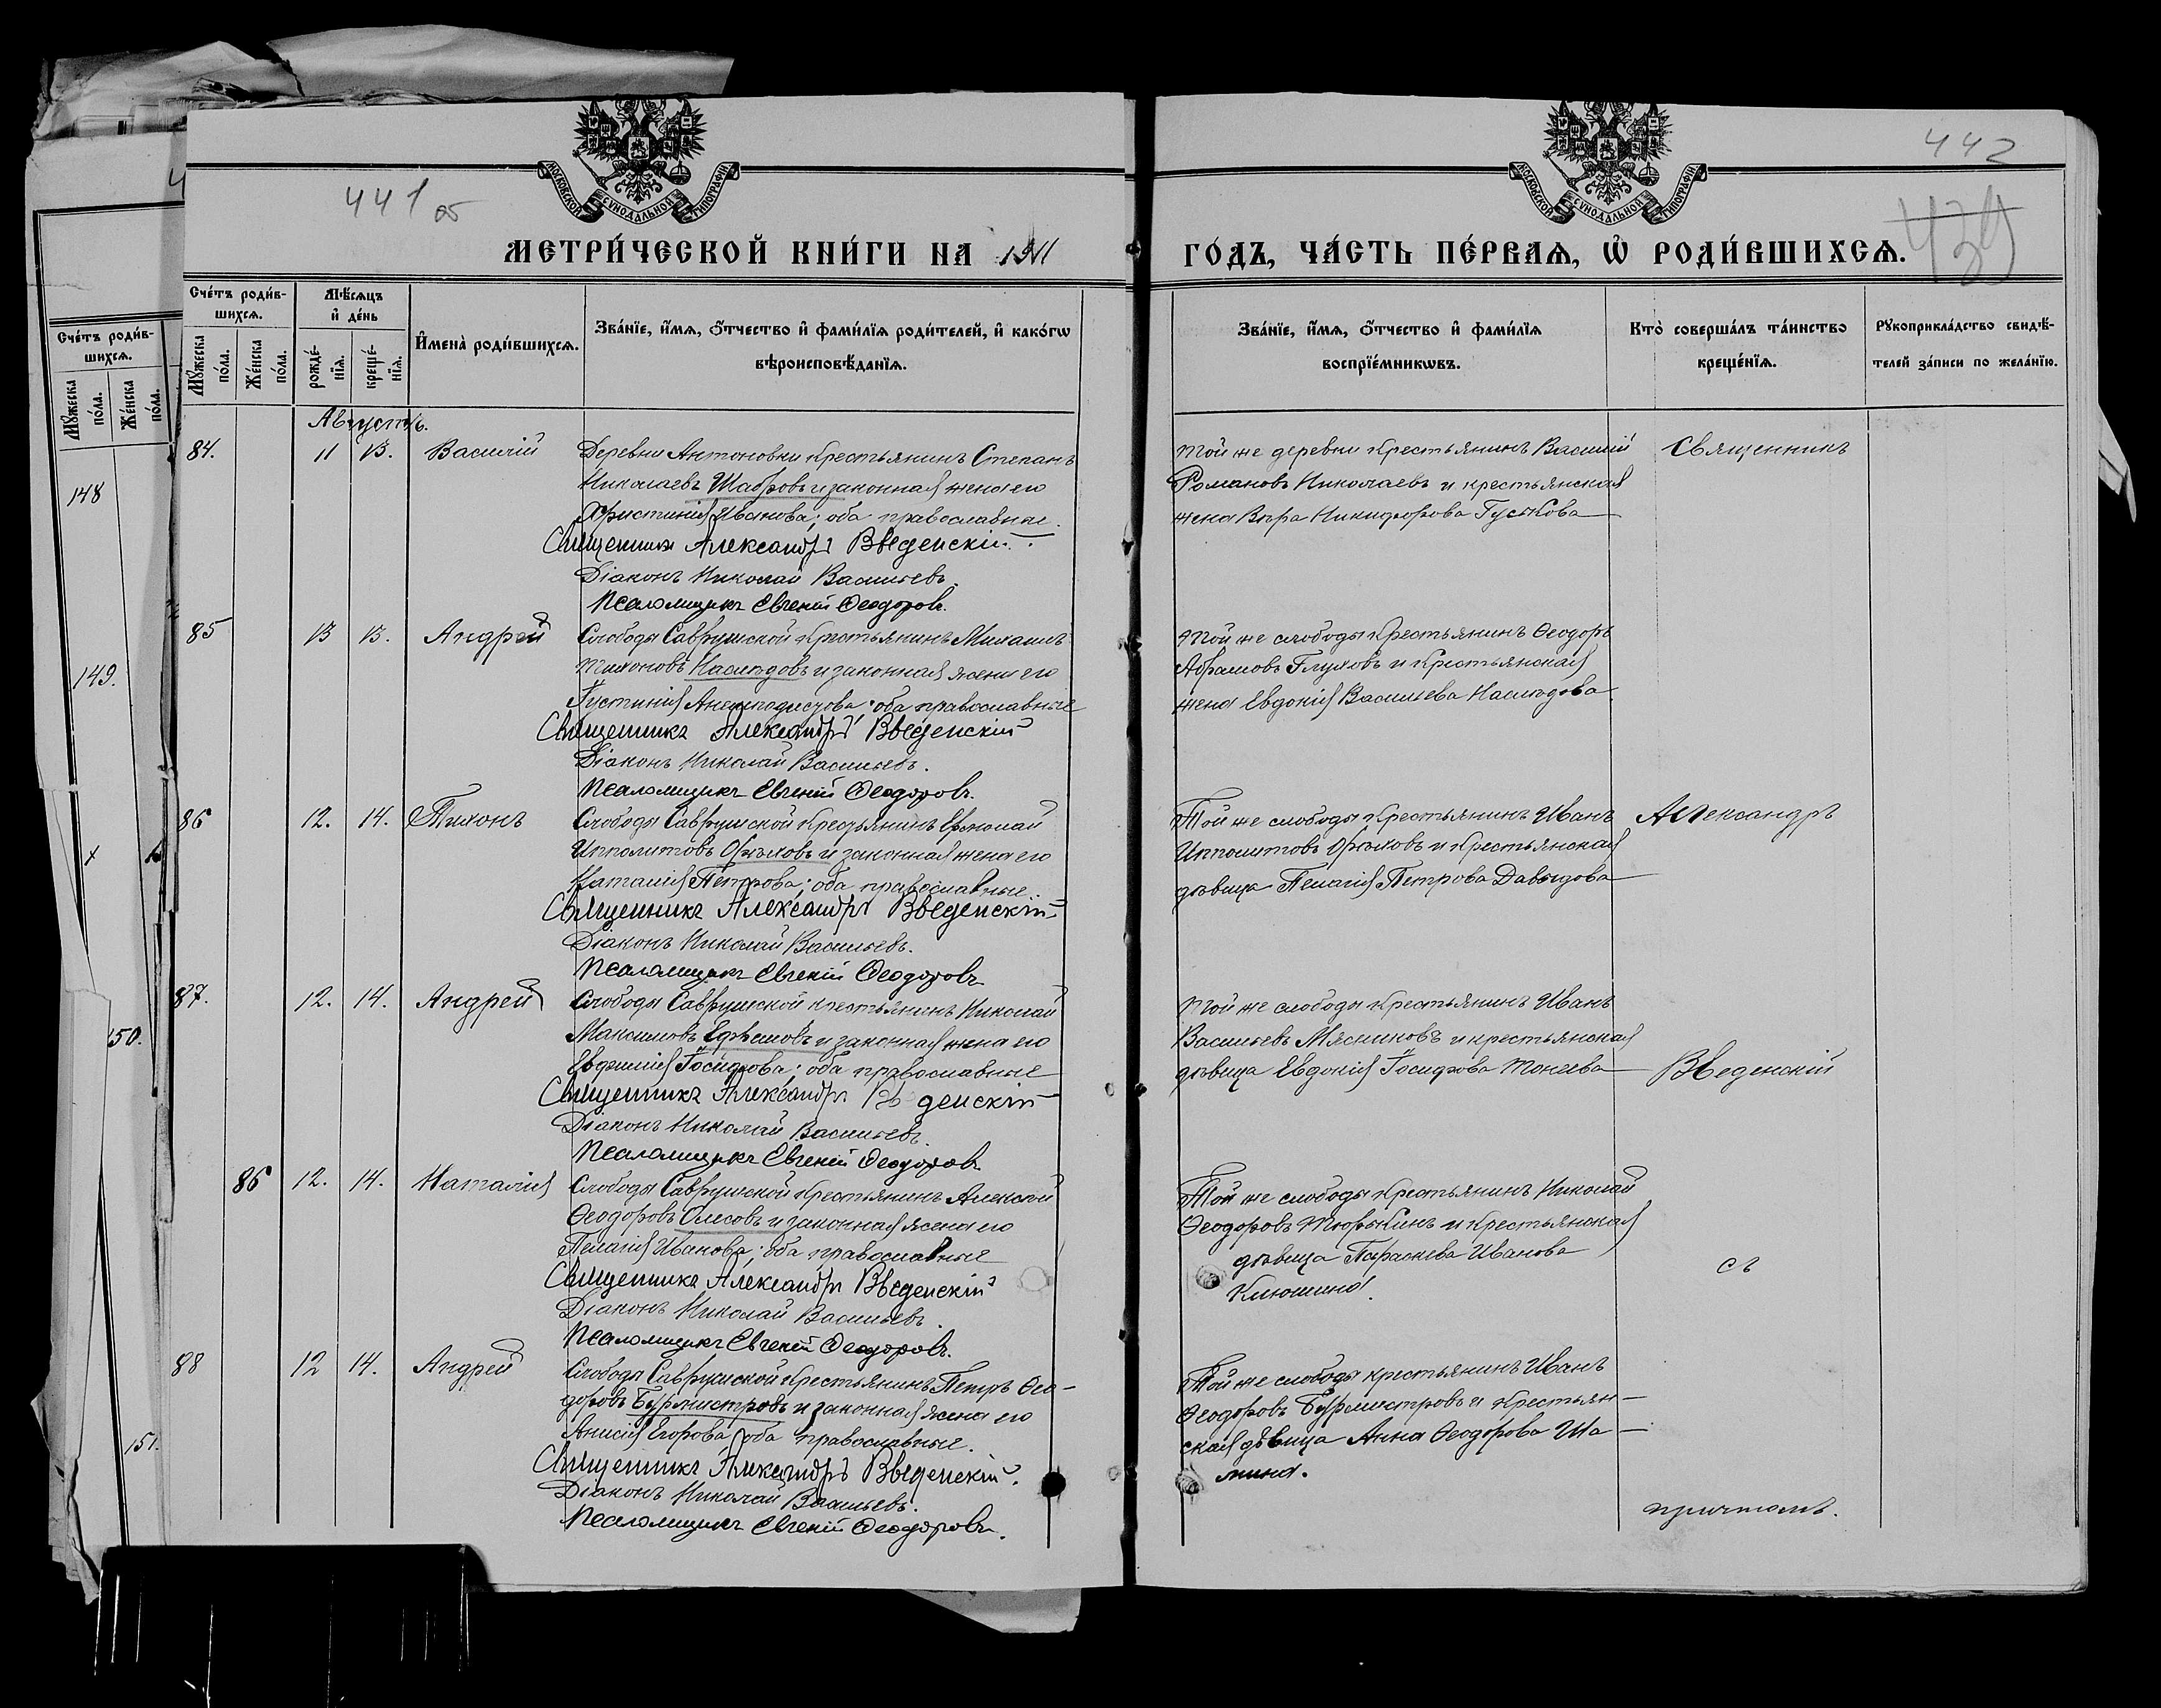 441 об
442
439
МЕТРИ́ЧЕСКОЙ КНИ́ГИ НА 1911
ГО́ДЪ, ЧА́СТЬ ПЕ́РВАЯ, Ѡ҆ РОДИ́ВШИХСЯ.
МОСКОВСКОЙ СУНОДАЛЬНОЙ ТИПОГРАФІИ
МОСКОВСКОЙ СУНОДАЛЬНОЙ ТИПОГРАФІИ
Сче́тъ роди́в-
шихся.
Мꙋ́жеска по́ла.
Же́нска по́ла.
Мѣ́сяцъ
и҆ де́нь
рожде́-
нїя.
креще́-
нїя.
И҆мена̀ роди́вшихся.
Зва́нїе, и҆́мя, ѻ҆́тчество и҆ фами́лїя роди́телей, и҆ како́гѡ
вѣроисповѣ́данїя.
Зва́нїе, и҆́мя, ѻ҆́тчество и҆ фами́лїя
воспрїе́мникѡвъ.
Кто̀ соверша́лъ та́инство
креще́нїя.
Рꙋкоприкла́дство свидѣ́-
телей за́писи по жела́нїю.
Сче́тъ роди́в-
шихся.
Мꙋ́жеска по́ла.
Же́нска по́ла.
148
149.
150.
151.
Августъ.
84. 11 13. Василій
Деревни Антоновки крестьянинъ Степанъ
Николаевъ Шабровъ и законная жена его
Христинія Иванова; оба православные.
Священникъ Александръ Введенскій.
Діаконъ Николай Васильевъ.
Псаломщикъ Евгеній Ѳеодоровъ.
Той же деревни крестьянинъ Василій
Романовъ Николаевъ и крестьянская
жена Вѣра Никифорова Гуськова
Священникъ
85 13 13. Андрей
Слободы Саврушской крестьянинъ Михаилъ
Тихоновъ Наслѣдовъ и законная жена его
Іустинія Анемподистова; оба православные
Священникъ Александръ Введенскій
Діаконъ Николай Васильевъ.
Псаломщикъ Евгеній Ѳеодоровъ.
Той же слободы крестьянинъ Ѳеодоръ
Абрамовъ Глуховъ и крестьянская
жена Евдокія Васильева Наслѣдова
86 12. 14. Тихонъ
Слободы Саврушской крестьянинъ Ермолай
Ипполитовъ Орѣховъ и законная жена его
Наталія Петрова; оба православные.
Священникъ Александръ Введенскій
Діаконъ Николай Васильевъ.
Псаломщикъ Евгеній Ѳеодоровъ
Той же слободы крестьянинъ Иванъ
Ипполитовъ Орѣховъ и крестьянская
дѣвица Пелагія Петрова Давыдова
Александръ
87. 12. 14. Андрей
Слободы Саврушской крестьянинъ Николай
Максимовъ Ефремовъ и законная жена его
Іосифова; оба православные
Священникъ Александръ Введенскій
Діаконъ Николай Васильевъ.
Псаломщикъ Евгеній Ѳеодоровъ
Той же слободы крестьянинъ Иванъ
Васильевъ Мясниковъ и крестьянская
дѣвица Евдокія Іосифова
Введенскій
86 12. 14. Наталія
Слободы Саврушской крестьянинъ Алексѣй
Ѳеодоровъ и законная жена его
Пелагія Иванова; оба православные
Священникъ Александръ Введенскій
Діаконъ Николай Васильевъ.
Псаломщикъ Евгеній Ѳеодоровъ.
Той же слободы крестьянинъ Николай
Ѳеодоровъ Тюрькинъ и крестьянская
дѣвица Параскева Иванова
Клюшина.
съ
88 12 14. Андрей
Слободы Саврушской крестьянинъ Петръ Ѳео-
доровъ Бурмистровъ и законная жена его
Анисія Егорова; оба православные.
Священникъ Александръ Введенскій.
Діаконъ Николай Васильевъ.
Псаломщикъ Евгеній Ѳеодоровъ.
Той же слободы крестьянинъ Иванъ
Ѳеодоровъ Бурмистровъ и крестьян-
ская дѣвица Анна Ѳеодорова Ша-
мина.
причтомъ.